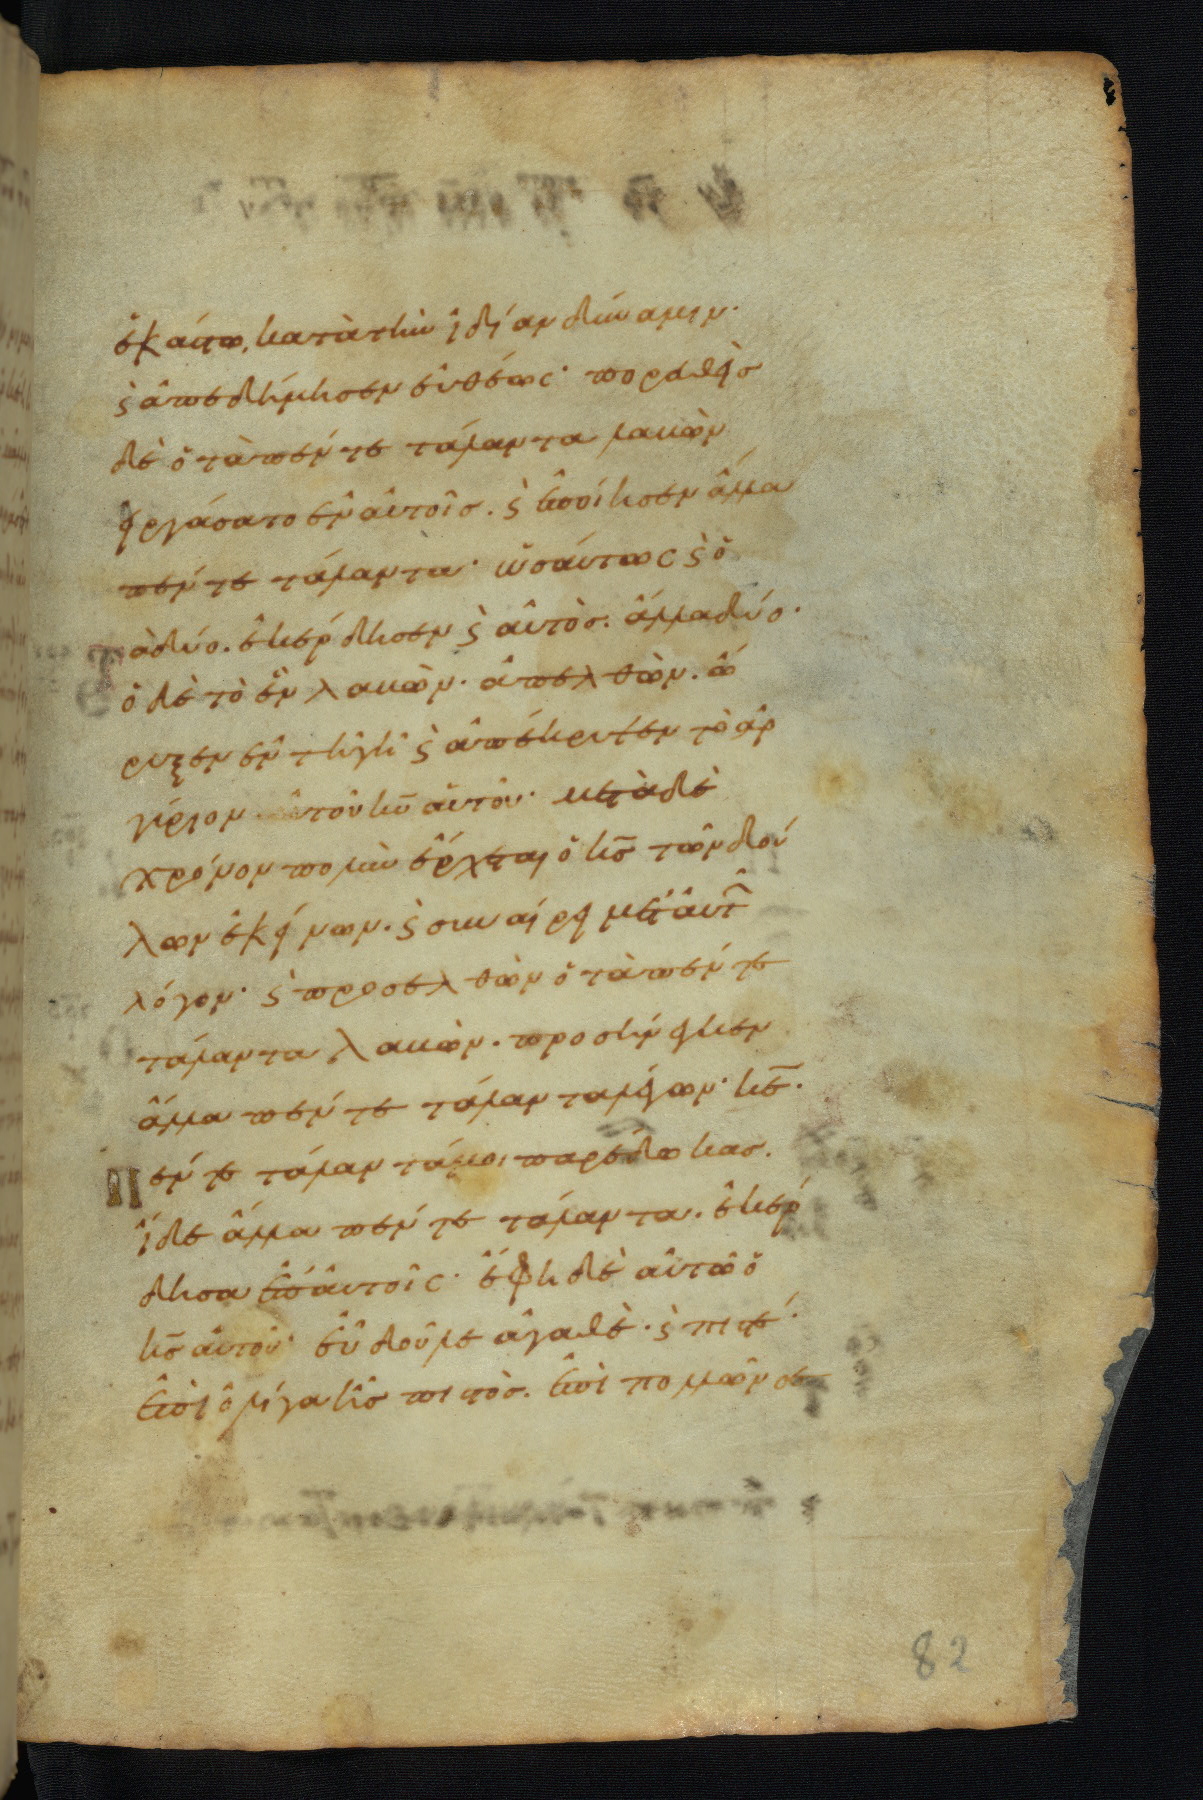 ἑκάστω κατὰ τὴν ἰδίαν δύναμιν·
ϗ ἀπεδήμησεν εὐθέως· πορευθεὶσ
δὲ ὁ τὰ πέντε τάλαντα λαβὼν
εἰργάσατο ἐν αὐτοῖσ. ϗ ἐποίησεν ἄλλα
πέντε τάλαντα· ὡσαύτως ϗ ὁ
τὰ δύο. ἐκέρδησεν ϗ αὐτὸσ. ἄλλα δύο.
ὁ δὲ τὸ ἓν λαβὼν. ἀπελθὼν. ὤ
ρυξεν ἐν τῆ γῆ ϗ ἀπέκρυψεν τὸ ἀρ
γύριον τοῦ κ̅υ̅ αὐτοῦ· μετὰ δὲ
χρόνον πολὺν ἔρχεται ὁ κ̅σ̅ τῶν δού
λων ἐκείνων. ϗ συναίρει μετ' αὐτῶ̅
λόγον· ϗ προσελθὼν ὁ τὰ πέντε
τάλαντα λαβὼν. προσήνεγκεν
ἄλλα πέντε τάλαντα λέγων· κ̅ε̅.
Πέντε τάλαντά μοι παρέδωκασ.
ἴδε ἄλλα πέντε τάλαντα. ἐκέρ
δησα ἐπ' αὐτοῖς· ἔφη δὲ αὐτῶ ὁ
κ̅σ̅ αὐτοῦ· εὖ δοῦλε ἀγαθὲ· ϗ πιστέ·
ἐπὶ ὀλίγα ἦσ πιστὸσ. ἐπὶ πολλῶν σε
82